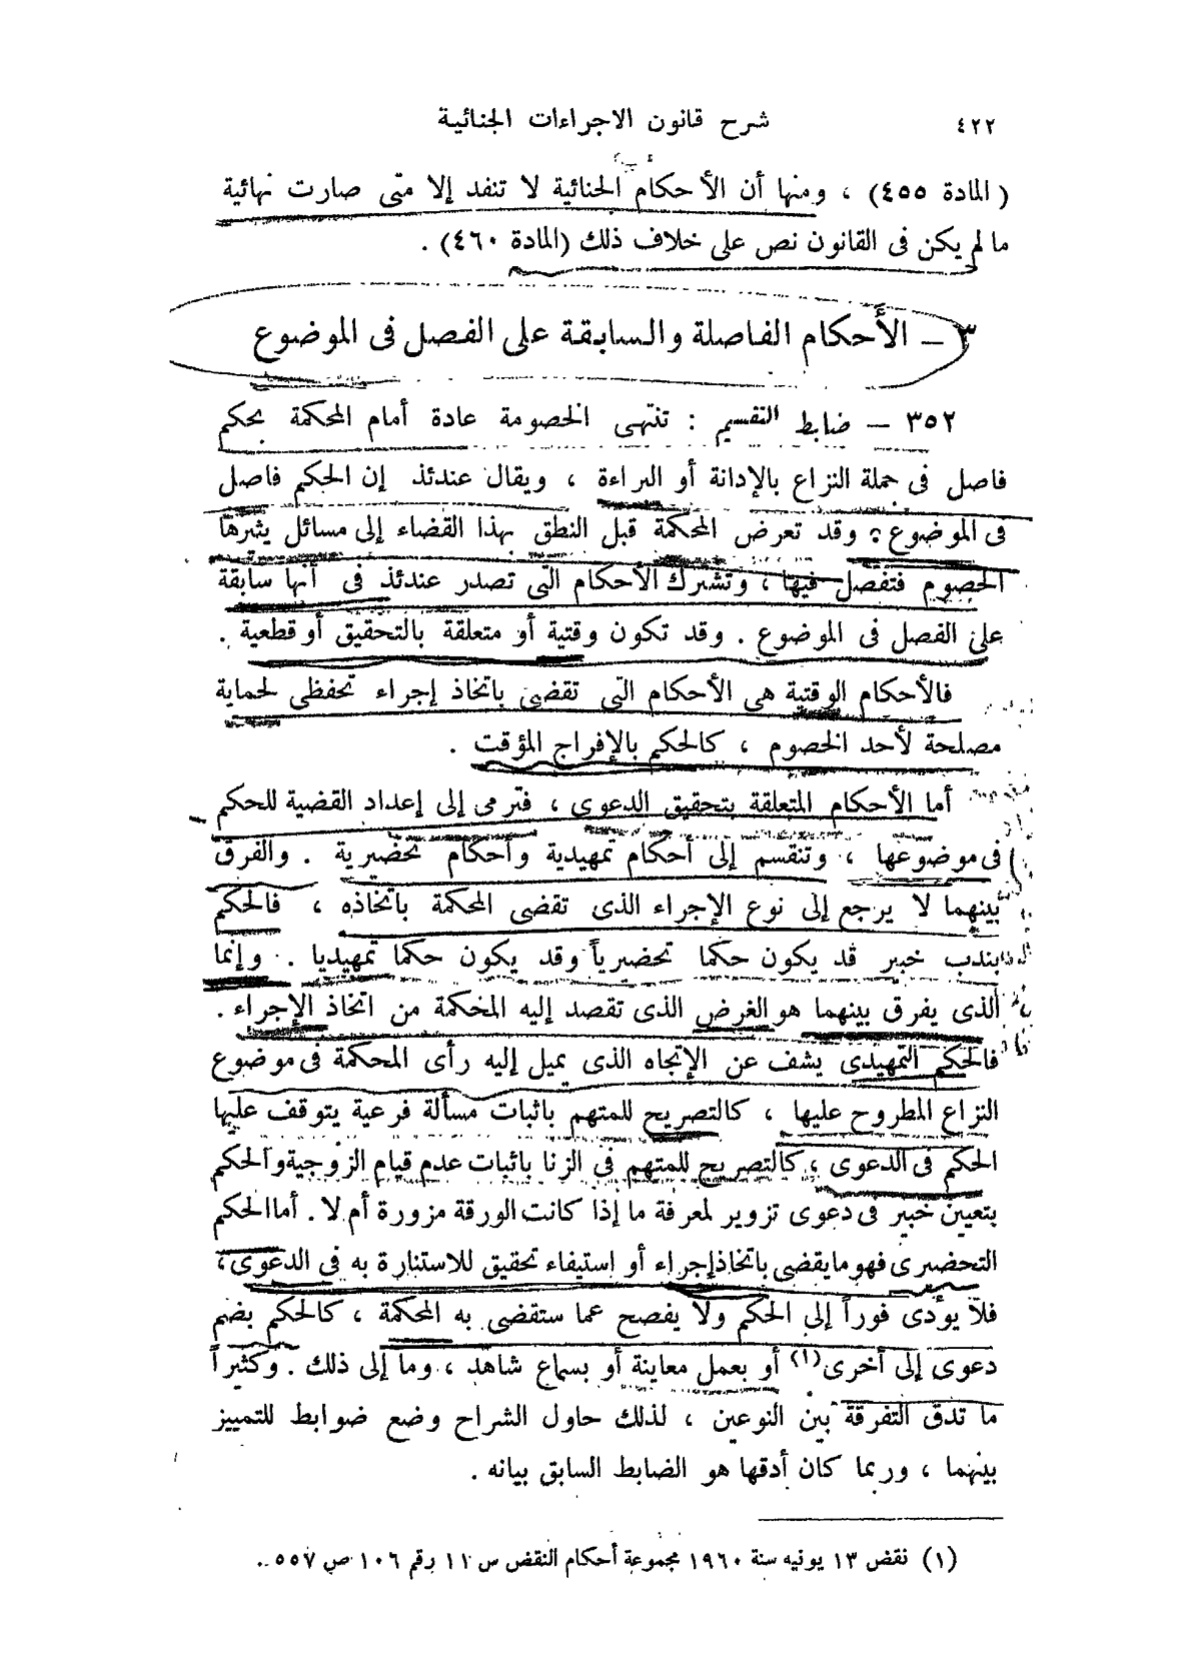 ٤٢٢
شرح قانون الاجراءات الجنائية
( المادة ٤٥٥) ، ومنها أن الأحكام الجنائية لا تنفد إلا متى صارت نهائية
ما لم يكن فى القانون نص على خلاف ذلك (المادة ٤٦٠) .
٣ – الأحكام الفاصلة والسابقة على الفصل فى الموضوع
٣٥٢ – ضابط التقسيم : تنتهى الخصومة عادة أمام المحكمة بحكم
فاصل فى جملة النزاع بالإدانة أو البراءة ، ويقال عندئذ إن الحكم فاصل
فى الموضوع ؛ وقد تعرض المحكمة قبل النطق بهذا القضاء إلى مسائل يثيرها
الخصوم فتفصل فيها ، وتشترك الأحكام التى تصدر عندئذ فى أنها سابقة
على الفصل فى الموضوع . وقد تكون وقتية أو متعلقة بالتحقيق أو قطعية .
فالأحكام الوقتية هى الأحكام التى تقضى باتخاذ إجراء تحفظى لحماية
مصلحة لأحد الخصوم ، كالحكم بالإفراج المؤقت .
أما الأحكام المتعلقة بتحقيق الدعوى ، فترمى إلى إعداد القضية للحكم
فى موضوعها ، وتنقسم إلى أحكام تمهيدية وأحكام تحضيرية . والفرق
بينهما لا يرجع إلى نوع الإجراء الذى تقضى المحكمة باتخاذه ، فالحكم
بندب خبير قد يكون حكما تحضيرياً وقد يكون حكما تمهيديا . وإنما
الذى يفرق بينهما هو الغرض الذى تقصد إليه المحكمة من اتخاذ الإجراء .
فالحكم التمهيدى يشف عن الإتجاه الذى يميل إليه رأى المحكمة فى موضوع
النزاع المطروح عليها ، كالتصريح للمتهم باثبات مسألة فرعية يتوقف عليها
الحكم فى الدعوى ، كالتصريح للمتهم فى الزنا باثبات عدم قيام الزوجية والحكم
بتعيين خبير فى دعوى تزوير لمعرفة ما إذا كانت الورقة مزورة أم لا . أما الحكم
التحضيرى فهو ما يقضى باتخاذ إجراء أو استيفاء تحقيق للاستنارة به فى الدعوى ،
فلا يؤدى فوراً إلى الحكم ولا يفصح عما ستقضى به المحكمة ، كالحكم بضم
دعوى إلى أخرى (١) أو بعمل معاينة أو بسماع شاهد ، وما إلى ذلك . وكثيراً
ما تدق التفرقة بين النوعين ، لذلك حاول الشراح وضع ضوابط للتمييز
بينهما ، وربما كان أدقها هو الضابط السابق بيانه .
(١) نقض ١٣ يونيه سنة ١٩٦٠ مجموعة أحكام النقض س ١١ رقم ١٠٦ ص ٥٥٧ .